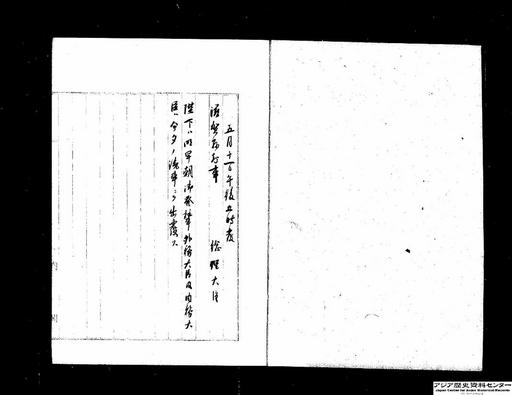 五月十一日午後五時発
滋賀県知事
総理大臣
陛下ハ明早朝御発輦外務大臣及内務大
臣ハ今夕ノ汽車ニテ出發ス
内閣
アジア歴史資料センター
Japan Center for Asian Historical Records